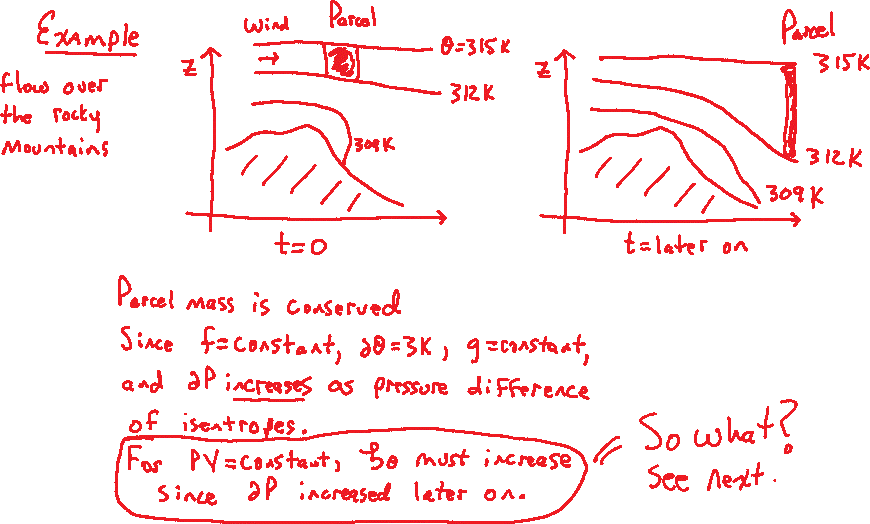 Example
flow over
the rocky
Mountains
Wind
Parcel
z
→
θ=315K
312K
309K
t=0
Parcel
z
315K
312K
309K
t=later on
Parcel mass is conserved
Since f=constant, ∂θ=3K, g=constant,
and ∂P increases as pressure difference
of isentropes.
For PV=constant, ζθ must increase
since ∂P increased later on.
So what?
See next.